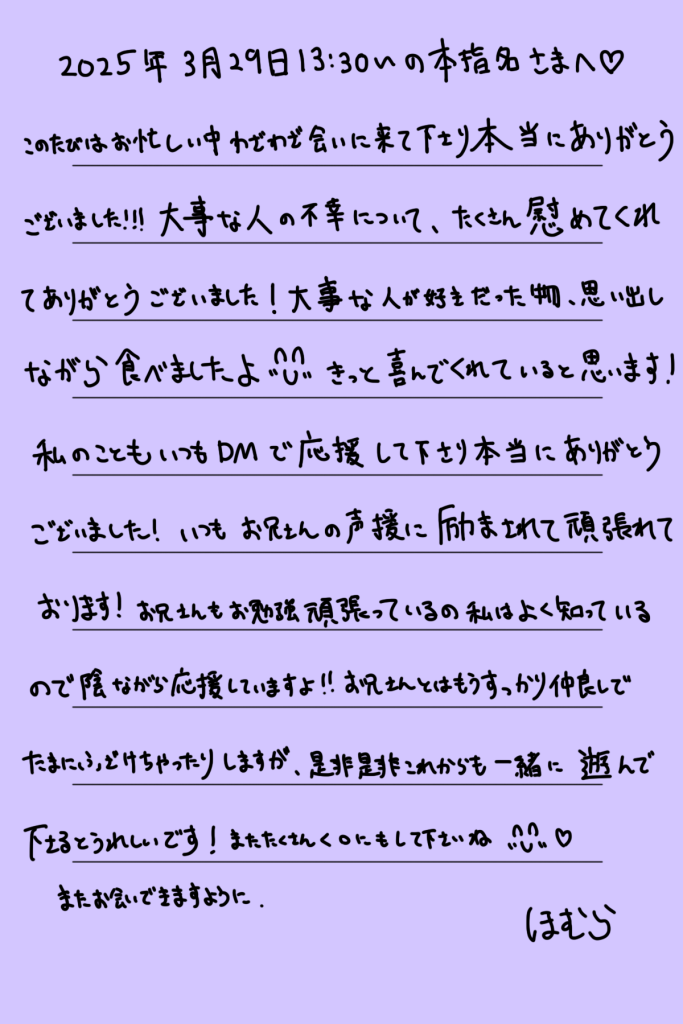 2025年 3月29日13:30〜の本指名さまへ♡
このたびはお忙しい中わざわざ会いに来て下さり本当にありがとう
ございました!!! 大事な人の不幸について、たくさん慰めてくれ
てありがとうございました！大事な人が好きだった物、思い出し
ながら食べましたよ きっと喜んでくれていると思います！
私のこともいつもDMで応援して下さり本当にありがとう
ございました！いつもお兄さんの声援に励まされて頑張れて
おります！お兄さんもお勉強頑張っているの私はよく知っている
ので陰ながら応援していますよ!! お兄さんとはもうすっかり仲良しで
たまにふざけちゃったりしますが、是非是非これからも一緒に遊んで
下さるとうれしいです！またたくさんく〇にもして下さいね ♡
またお会いできますように.
ほむら